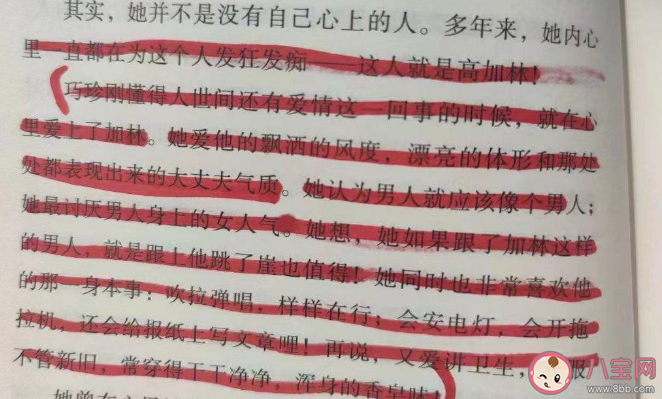 其实，她并不是没有自己心上的人。多年来，她内心
里一直都在为这个人发狂发痴——这人就是高加林！
巧珍刚懂得人世间还有爱情这一回事的时候，就在心
里爱上了加林。她爱他的飘洒的风度，漂亮的体形和那处
处都表现出来的大丈夫气质。她认为男人就应该像个男人；
她最讨厌男人身上的女人气。她想，她如果跟了加林这样
的男人，就是跟上他跳了崖也值得！她同时也非常喜欢他
的那一身本事：吹拉弹唱，样样在行；会安电灯，会开拖
拉机，还会给报纸上写文章哩！再说，又爱讲卫生，服
不管新旧，常穿得干干净净，浑身的香皂味！
八宝网
www.8bb.com